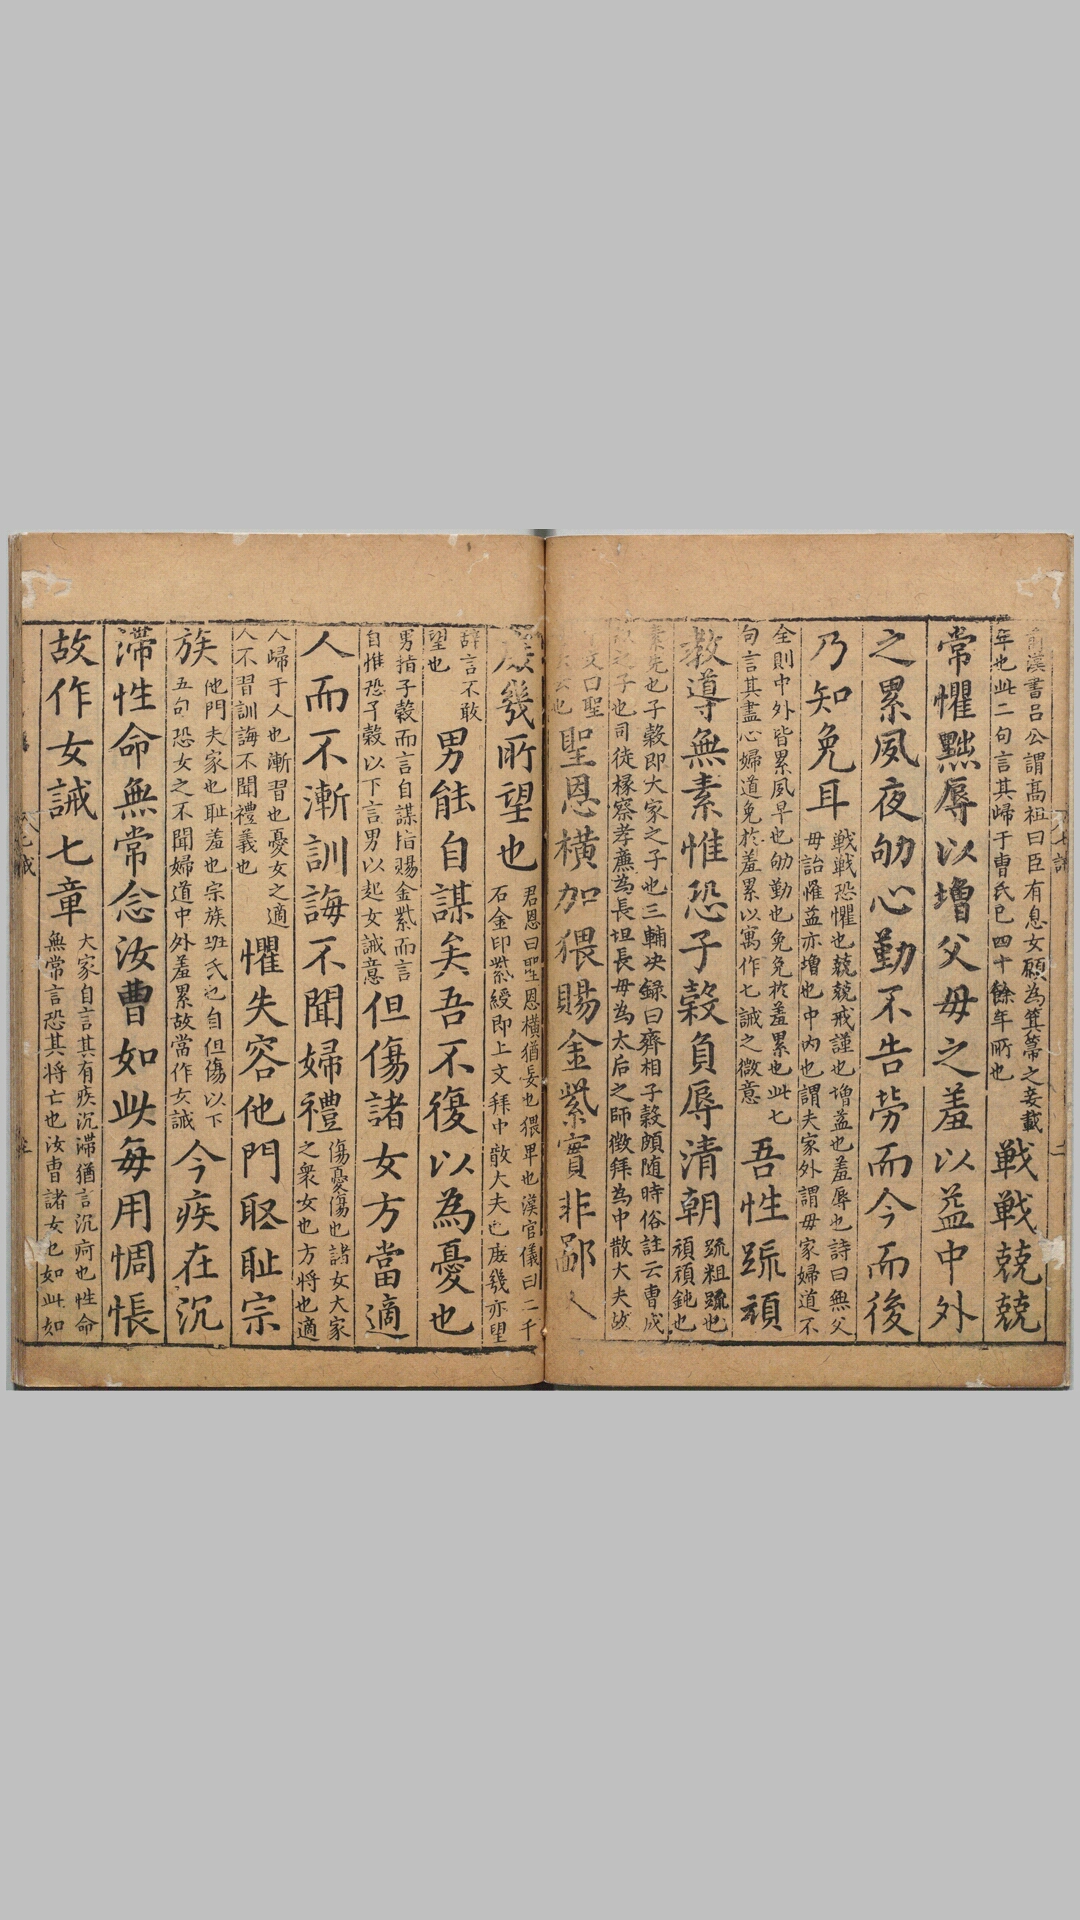 前漢書呂公謂高祖曰臣有息女願為箕箒之妾載
年也此二句言其歸于曹氏已四十餘年所也
戰戰兢兢
常懼黜辱以增父母之羞以益中外
之累夙夜劬心勤不告勞而今而後
乃知免耳
戰戰恐懼也兢兢戒謹也增益也羞辱也詩曰無父
母詒惟益亦增也中內也謂夫家外謂母家婦道不
全則中外皆累夙早也劬勤也免免於羞累也此七
句言其盡心婦道免於羞累以寓作七誡之微意
吾性踈頑
教導無素惟恐子穀負辱清朝
踈粗踈也
頑頑鈍也
素先也子穀即大家之子也三輔决録曰齊相子穀頗随時俗註云曹成
之子也司徒掾察孝廉為長垣長母為太后之師徵拜為中散大夫故
文曰聖
云也
聖恩橫加猥賜金紫實非鄙人
庶幾所望也
君恩曰聖恩橫猶妄也猥卑也漢官儀曰二千
石金印紫綬即上文拜中散大夫也庶幾亦望
辞言不敢
望也
男能自謀矣吾不復以為憂也
男指子穀而言自謀指賜金紫而言
自惟恐子穀以下言男以起女誡意
但傷諸女方當適
人而不漸訓誨不聞婦禮
傷憂傷也諸女大家
之衆女也方將也適
人歸于人也漸習也憂女之適
人不習訓誨不聞禮義也
懼失容他門取恥宗
族
他門夫家也恥羞也宗族班氏也自但傷以下
五句恐女之不聞婦道中外羞累故當作女誡
今疾在沉
滯性命無常念汝曹如此每用惆悵
故作女誡七章
大家自言其有疾沉滯猶言沉疴也性命
無常言恐其將亡也汝曹諸女也如此如